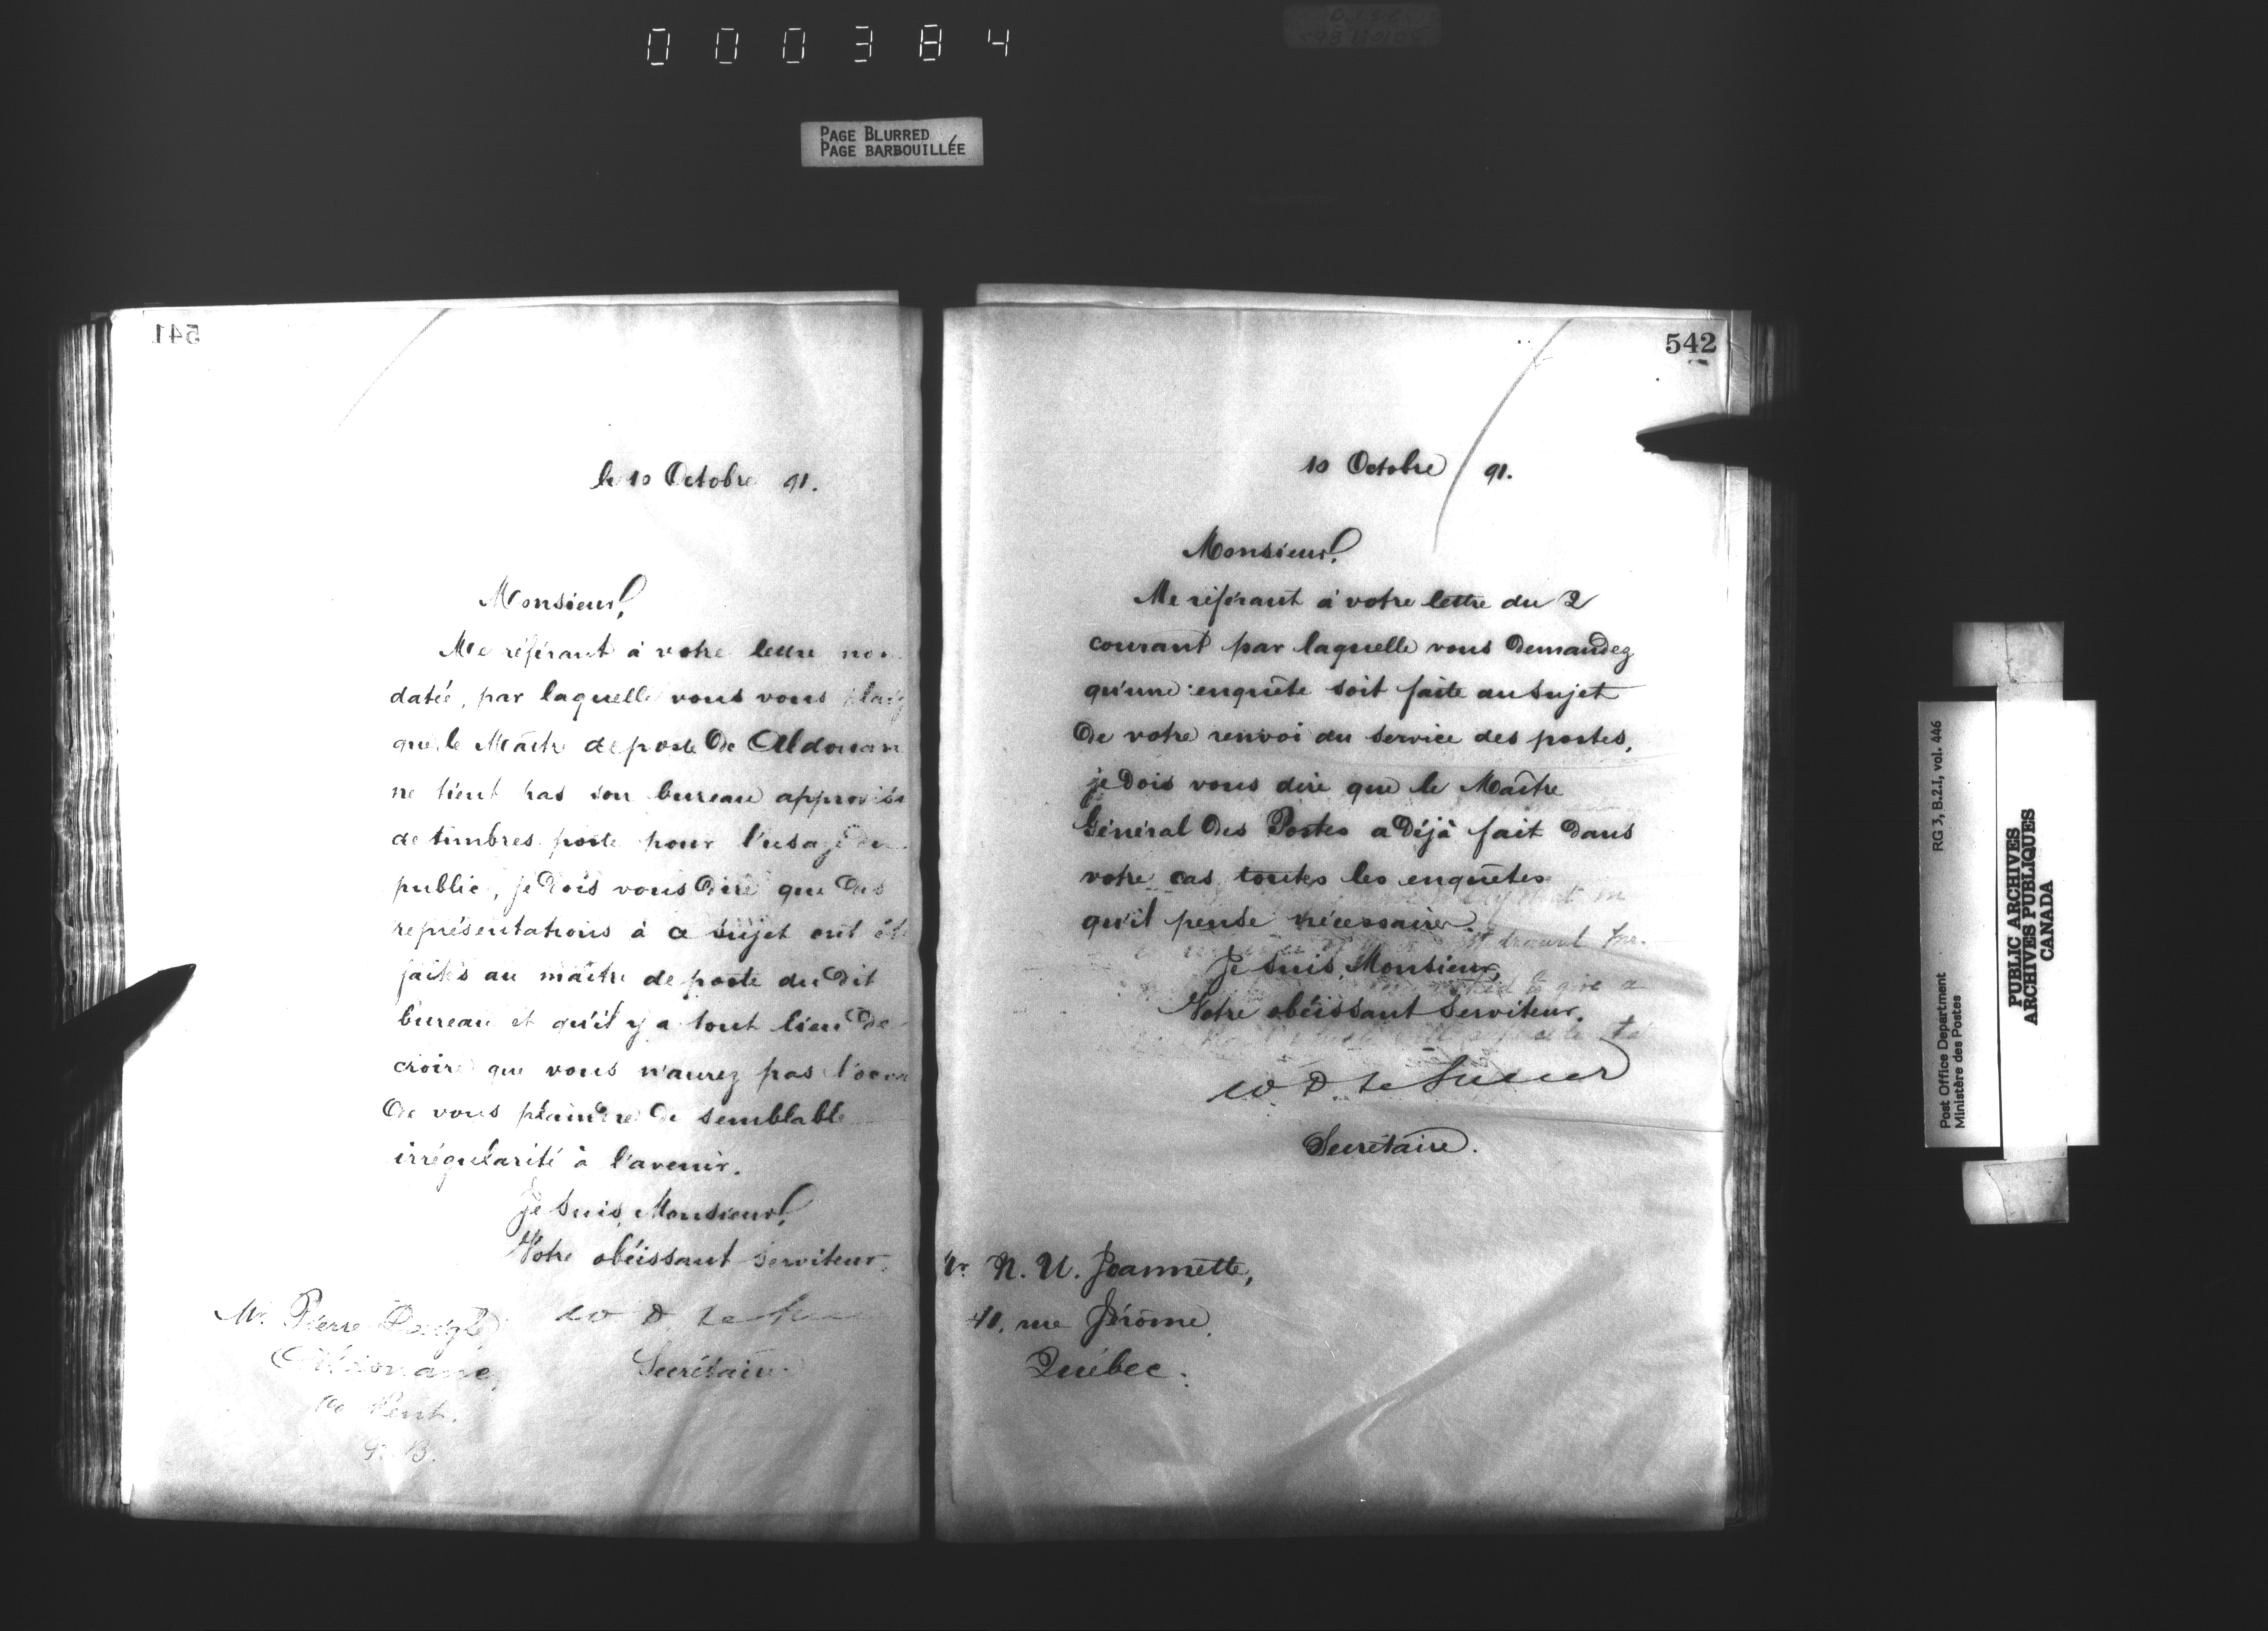 000384
PAGE BLURRED
PAGE BARBOUILLÉE
541
le 10 Octobre 91.
Monsieur,
Me référant à votre lettre non
datée, par laquelle vous vous plaig
que le Maître de poste de Aldouan
ne tient pas son bureau approvis
de timbres poste pour l'usage du
public, je dois vous dire que des
représentations à ce sujet ont ét
faites au maître de poste du dit
bureau et qu'il y a tout lieu de
croire que vous n'aurez pas l'occa
de vous plaindre de semblable
irrégularité à l'avenir.
Je suis, Monsieur,
Votre obéissant serviteur,
W D Le Sueur
Secrétaire
Mr. Pierre Daigle
Aldouane,
Co Kent.
N.B.
542
10 Octobre 91.
Monsieur,
Me référant à votre lettre du 2
courant par laquelle vous demandez
qu'une enquête soit faite au sujet
de votre renvoi du service des postes,
je dois vous dire que le Maître
Général des Postes a déjà fait dans
votre cas toutes les enquêtes
qu'il pense nécessaires.
Je suis, Monsieur,
Votre obéissant serviteur.
W. D. Le Sueur
Secrétaire.
Mr. N. U. Jeannette,
40, rue Jérôme,
Québec.
RG 3, B.2.I, vol. 446
Post Office Department
Ministère des Postes
PUBLIC ARCHIVES
ARCHIVES PUBLIQUES
CANADA